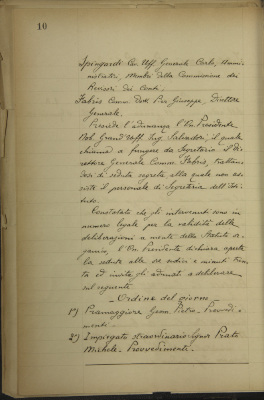 10
Spingardi Cav. Uff. Generale Carlo, Ammi-
nistratore, Membro della Commissione dei
Revisori dei Conti.
Fabris Comm. Dott. Pier Giuseppe, Direttore
Generale.
Presiede l'adunanza il Vice Presidente
Nob. Grand'Uff. Ing. Salvadori, il quale
chiama a fungere da Segretario il Di-
rettore Generale Comm. Fabris, trattan-
dosi di seduta segreta alla quale non as-
siste il personale di Segreteria dell'Isti-
tuto.
Constatato che gli intervenuti sono in
numero legale per la validità delle
deliberazioni a mente dello Statuto or-
ganico, il Vice Presidente dichiara aperta
la seduta alle ore undici e minuti tren-
ta ed invita gli adunati a deliberare
sul seguente
Ordine del giorno
1°) Pramaggiore Geom. Pietro - Provvedi-
menti.
2°) Impiegato straordinario Signor Prato
Michele - Provvedimenti.